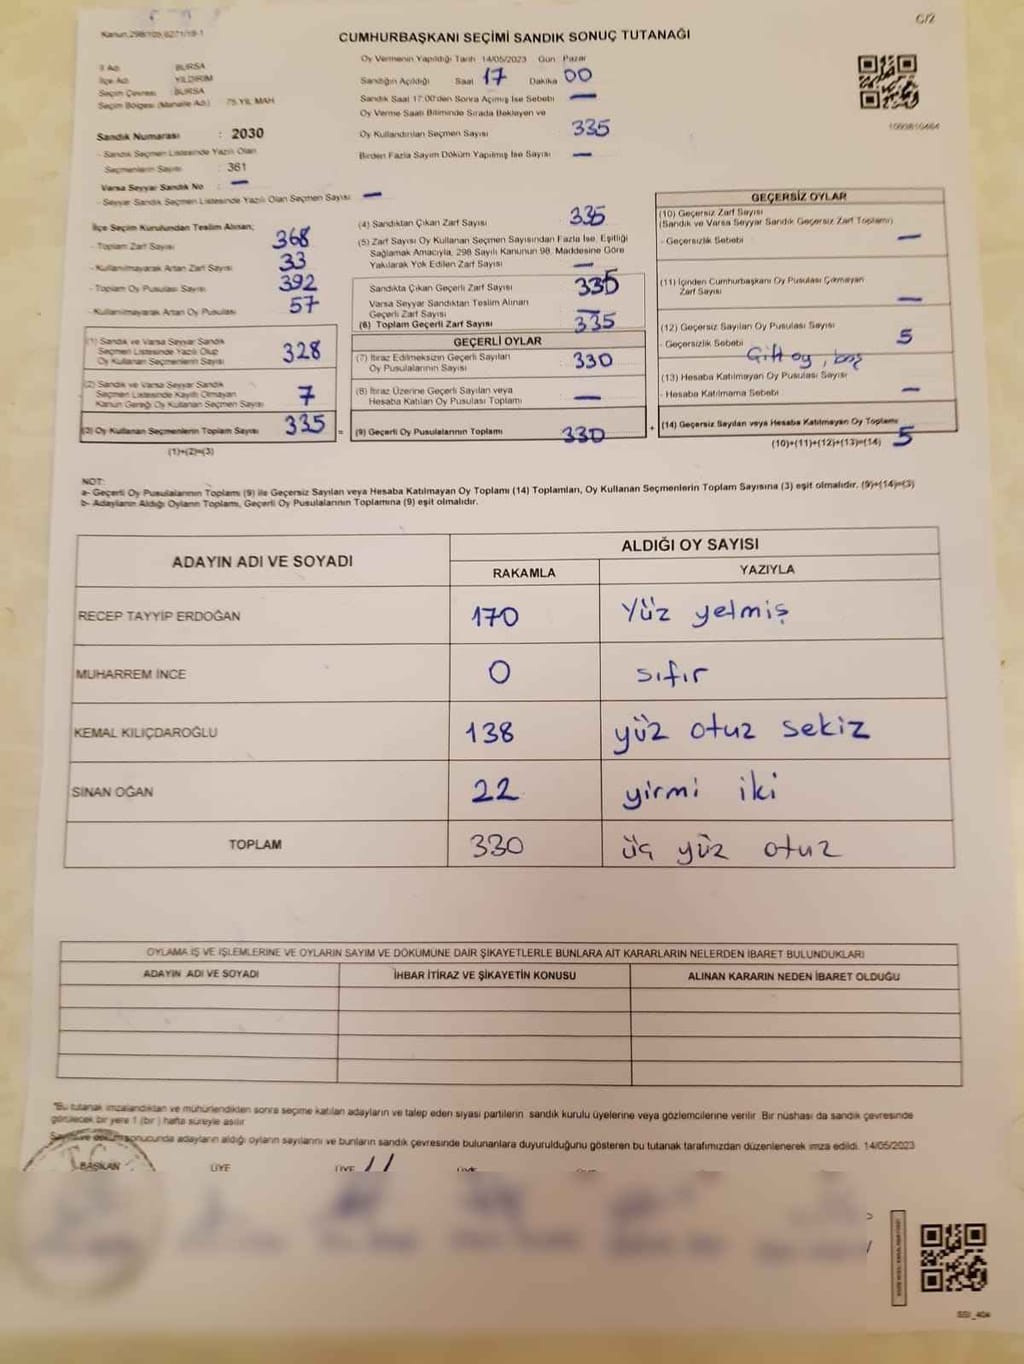 C/2
Kanun,298/105,6271/19-1
CUMHURBAŞKANI SEÇİMİ SANDIK SONUÇ TUTANAĞI
İl Adı : BURSA
İlçe Adı : YILDIRIM
Seçim Çevresi : BURSA
Seçim Bölgesi (Mahalle Adı.) 75.YIL MAH
Sandık Numarası : 2030
- Sandık Seçmen Listesinde Yazılı Olan
Seçmenlerin Sayısı : 361
Varsa Seyyar Sandık No : —
- Seyyar Sandık Seçmen Listesinde Yazılı Olan Seçmen Sayısı: —
Oy Vermenin Yapıldığı Tarih 14/05/2023 Gün Pazar
Sandığın Açıldığı Saat 17 Dakika 00
Sandık Saat 17:00'den Sonra Açılmış İse Sebebi —
Oy Verme Saati Bitiminde Sırada Bekleyen ve
Oy Kullandırılan Seçmen Sayısı 335
Birden Fazla Sayım Döküm Yapılmış İse Sayısı —
1093810464
İlçe Seçim Kurulundan Teslim Alınan;
- Toplam Zarf Sayısı 368
- Kullanılmayarak Artan Zarf Sayısı 33
- Toplam Oy Pusulası Sayısı 392
- Kullanılmayarak Artan Oy Pusulası 57
(1) Sandık ve Varsa Seyyar Sandık
Seçmen Listesinde Yazılı Olup
Oy Kullanan Seçmenlerin Sayısı 328
(2) Sandık ve Varsa Seyyar Sandık
Seçmen Listesinde Kayıtlı Olmayan
Kanun Gereği Oy Kullanan Seçmen Sayısı 7
(3) Oy Kullanan Seçmenlerin Toplam Sayısı 335
(1)+(2)=(3)
=
(4) Sandıktan Çıkan Zarf Sayısı 335
(5) Zarf Sayısı Oy Kullanan Seçmen Sayısından Fazla İse, Eşitliği
Sağlamak Amacıyla, 298 Sayılı Kanunun 98. Maddesine Göre
Yakılarak Yok Edilen Zarf Sayısı —
Sandıkta Çıkan Geçerli Zarf Sayısı 335
Varsa Seyyar Sandıktan Teslim Alınan
Geçerli Zarf Sayısı —
(6) Toplam Geçerli Zarf Sayısı 335
GEÇERLİ OYLAR
(7) İtiraz Edilmeksizin Geçerli Sayılan
Oy Pusulalarının Sayısı 330
(8) İtiraz Üzerine Geçerli Sayılan veya
Hesaba Katılan Oy Pusulası Toplamı —
(9) Geçerli Oy Pusulalarının Toplamı 330
+
GEÇERSİZ OYLAR
(10) Geçersiz Zarf Sayısı
(Sandık ve Varsa Seyyar Sandık Geçersiz Zarf Toplamı)
- Geçersizlik Sebebi —
(11) İçinden Cumhurbaşkanı Oy Pusulası Çıkmayan
Zarf Sayısı —
(12) Geçersiz Sayılan Oy Pusulası Sayısı 5
- Geçersizlik Sebebi Çift oy, boş
(13) Hesaba Katılmayan Oy Pusulası Sayısı
- Hesaba Katılmama Sebebi —
(14) Geçersiz Sayılan veya Hesaba Katılmayan Oy Toplamı
(10)+(11)+(12)+(13)=(14) 5
NOT:
a- Geçerli Oy Pusulalarının Toplamı (9) ile Geçersiz Sayılan veya Hesaba Katılmayan Oy Toplamı (14) Toplamları, Oy Kullanan Seçmenlerin Toplam Sayısına (3) eşit olmalıdır. (9)+(14)=(3)
b- Adayların Aldığı Oyların Toplamı, Geçerli Oy Pusulalarının Toplamına (9) eşit olmalıdır.
ADAYIN ADI VE SOYADI
ALDIĞI OY SAYISI
RAKAMLA YAZIYLA
RECEP TAYYİP ERDOĞAN 170 Yüz yetmiş
MUHARREM İNCE 0 sıfır
KEMAL KILIÇDAROĞLU 138 yüz otuz sekiz
SİNAN OĞAN 22 yirmi iki
TOPLAM 330 üç yüz otuz
OYLAMA İŞ VE İŞLEMLERİNE VE OYLARIN SAYIM VE DÖKÜMÜNE DAİR ŞİKAYETLERLE BUNLARA AİT KARARLARIN NELERDEN İBARET BULUNDUKLARI
ADAYIN ADI VE SOYADI İHBAR İTİRAZ VE ŞİKAYETİN KONUSU ALINAN KARARIN NEDEN İBARET OLDUĞU
*Bu tutanak imzalandıktan ve mühürlendikten sonra seçime katılan adayların ve talep eden siyasi partilerin sandık kurulu üyelerine veya gözlemcilerine verilir. Bir nüshası da sandık çevresinde
görülecek bir yere 1 (bir) hafta süreyle asılır
Sayım ve döküm sonucunda adayların aldığı oyların sayılarını ve bunların sandık çevresinde bulunanlara duyurulduğunu gösteren bu tutanak tarafımızdan düzenlenerek imza edildi. 14/05/2023
BAŞKAN ÜYE ÜYE
SSI_404